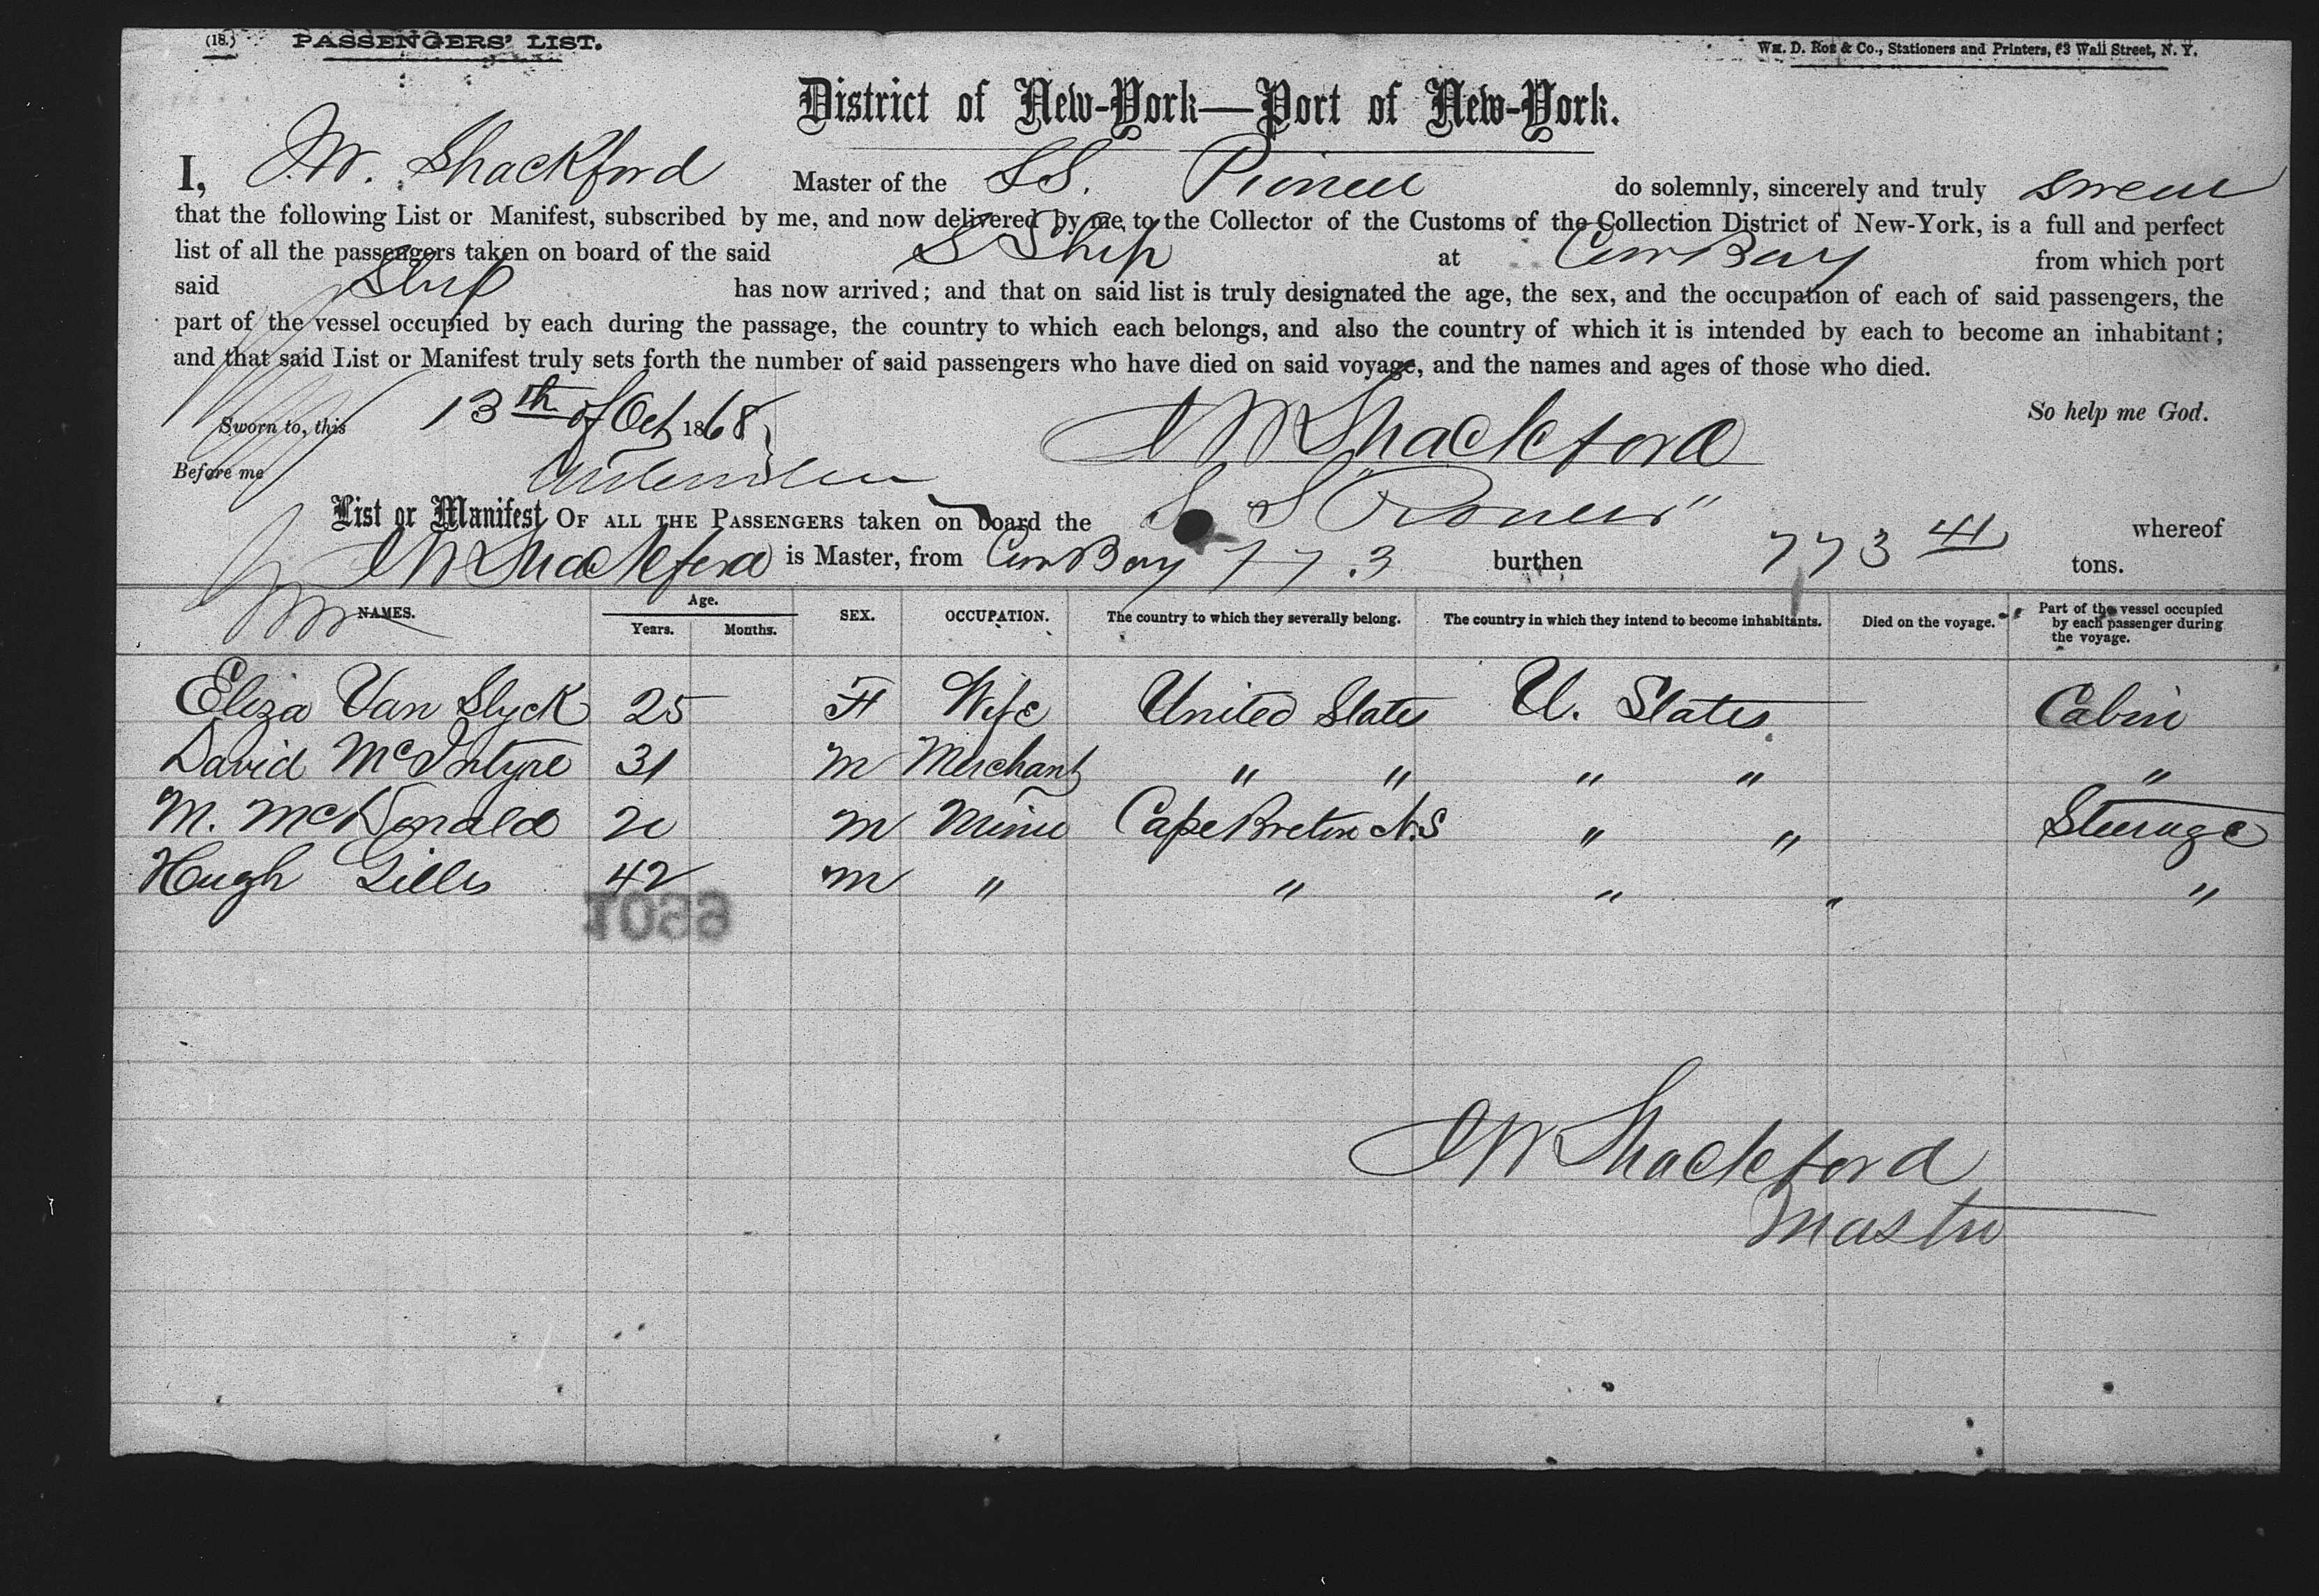 (18.) PASSENGERS' LIST. Wm. D. Roe & Co., Stationers and Printers, 63 Wall Street, N. Y.
District of New-York—Port of New-York.
I, J.W. Shackford Master of the SS. Pioneer do solemnly, sincerely and truly swear
that the following List or Manifest, subscribed by me, and now delivered by me to the Collector of the Customs of the Collection District of New-York, is a full and perfect
list of all the passengers taken on board of the said S Ship at Cow Bay from which port
said Ship has now arrived; and that on said list is truly designated the age, the sex, and the occupation of each of said passengers, the
part of the vessel occupied by each during the passage, the country to which each belongs, and also the country of which it is intended by each to become an inhabitant;
and that said List or Manifest truly sets forth the number of said passengers who have died on said voyage, and the names and ages of those who died.
So help me God.
Sworn to, this 13th of Oct 1868 J W Shackford
Before me
List or Manifest OF ALL THE PASSENGERS taken on board the S S "Pioneer" whereof
J W Shackford is Master, from Cow Bay 77.3 burthen 773 41 tons.
NAMES. Age. Years. Months. SEX. OCCUPATION. The country to which they severally belong. The country in which they intend to become inhabitants. Died on the voyage. Part of the vessel occupied by each passenger during the voyage.
Eliza Van Slyck 25 F Wife United States U. States Cabin
David McIntyre 31 M Merchant " " " " "
M. McDonald M Miner Cape Breton N.S " " Steerage
Hugh Gillis 42 M " " " " "
1099
J W Shackford
Master